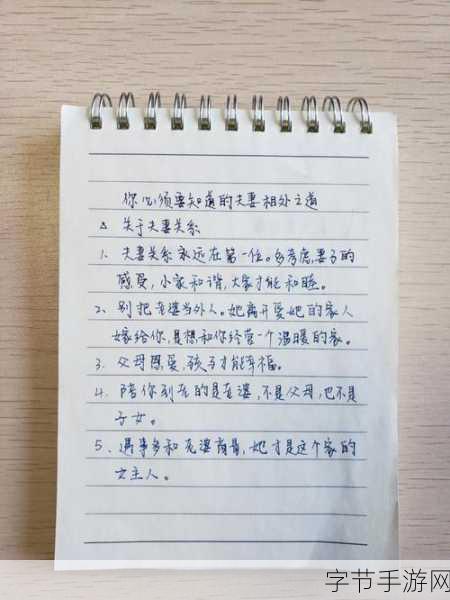 你必须要知道的夫妻相处之道
△ 关于夫妻关系
1、夫妻关系永远在第一位。多考虑妻子的
感受，小家和谐，大家才能和睦。
2、别把老婆当外人。她离开爱她的家人
嫁给你，是想和你经营一个温暖的家。
3、父母恩爱，孩子才能幸福。
4、陪你到老的是老婆，不是父母，也不是
子女。
5、遇事多和老婆商量，她才是这个家的
女主人。
字节手游网